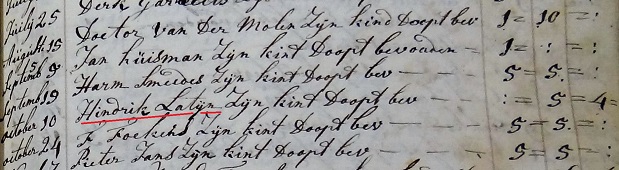 Derk
July 25 Doctor Van Der Molen Zijn kind Doopt bev 1 = 10 = :
August 15 Jan huisman Zijn kint Doopt bevonden 1 = : = :
Septemb 5 Harm Smedes Zijn kint Doopt bev — — — 5 = 5 = :
Septemb 19 Hindrik Latijn Zijn kint Doopt bev — — : = 5 = 4 =
october 10 F Foekens Zijn kint Doopt bev — — — 5 = 5 = :
october 24 Pieter Jans Zijn kint Doopt bev — — — 5 = 5 = :